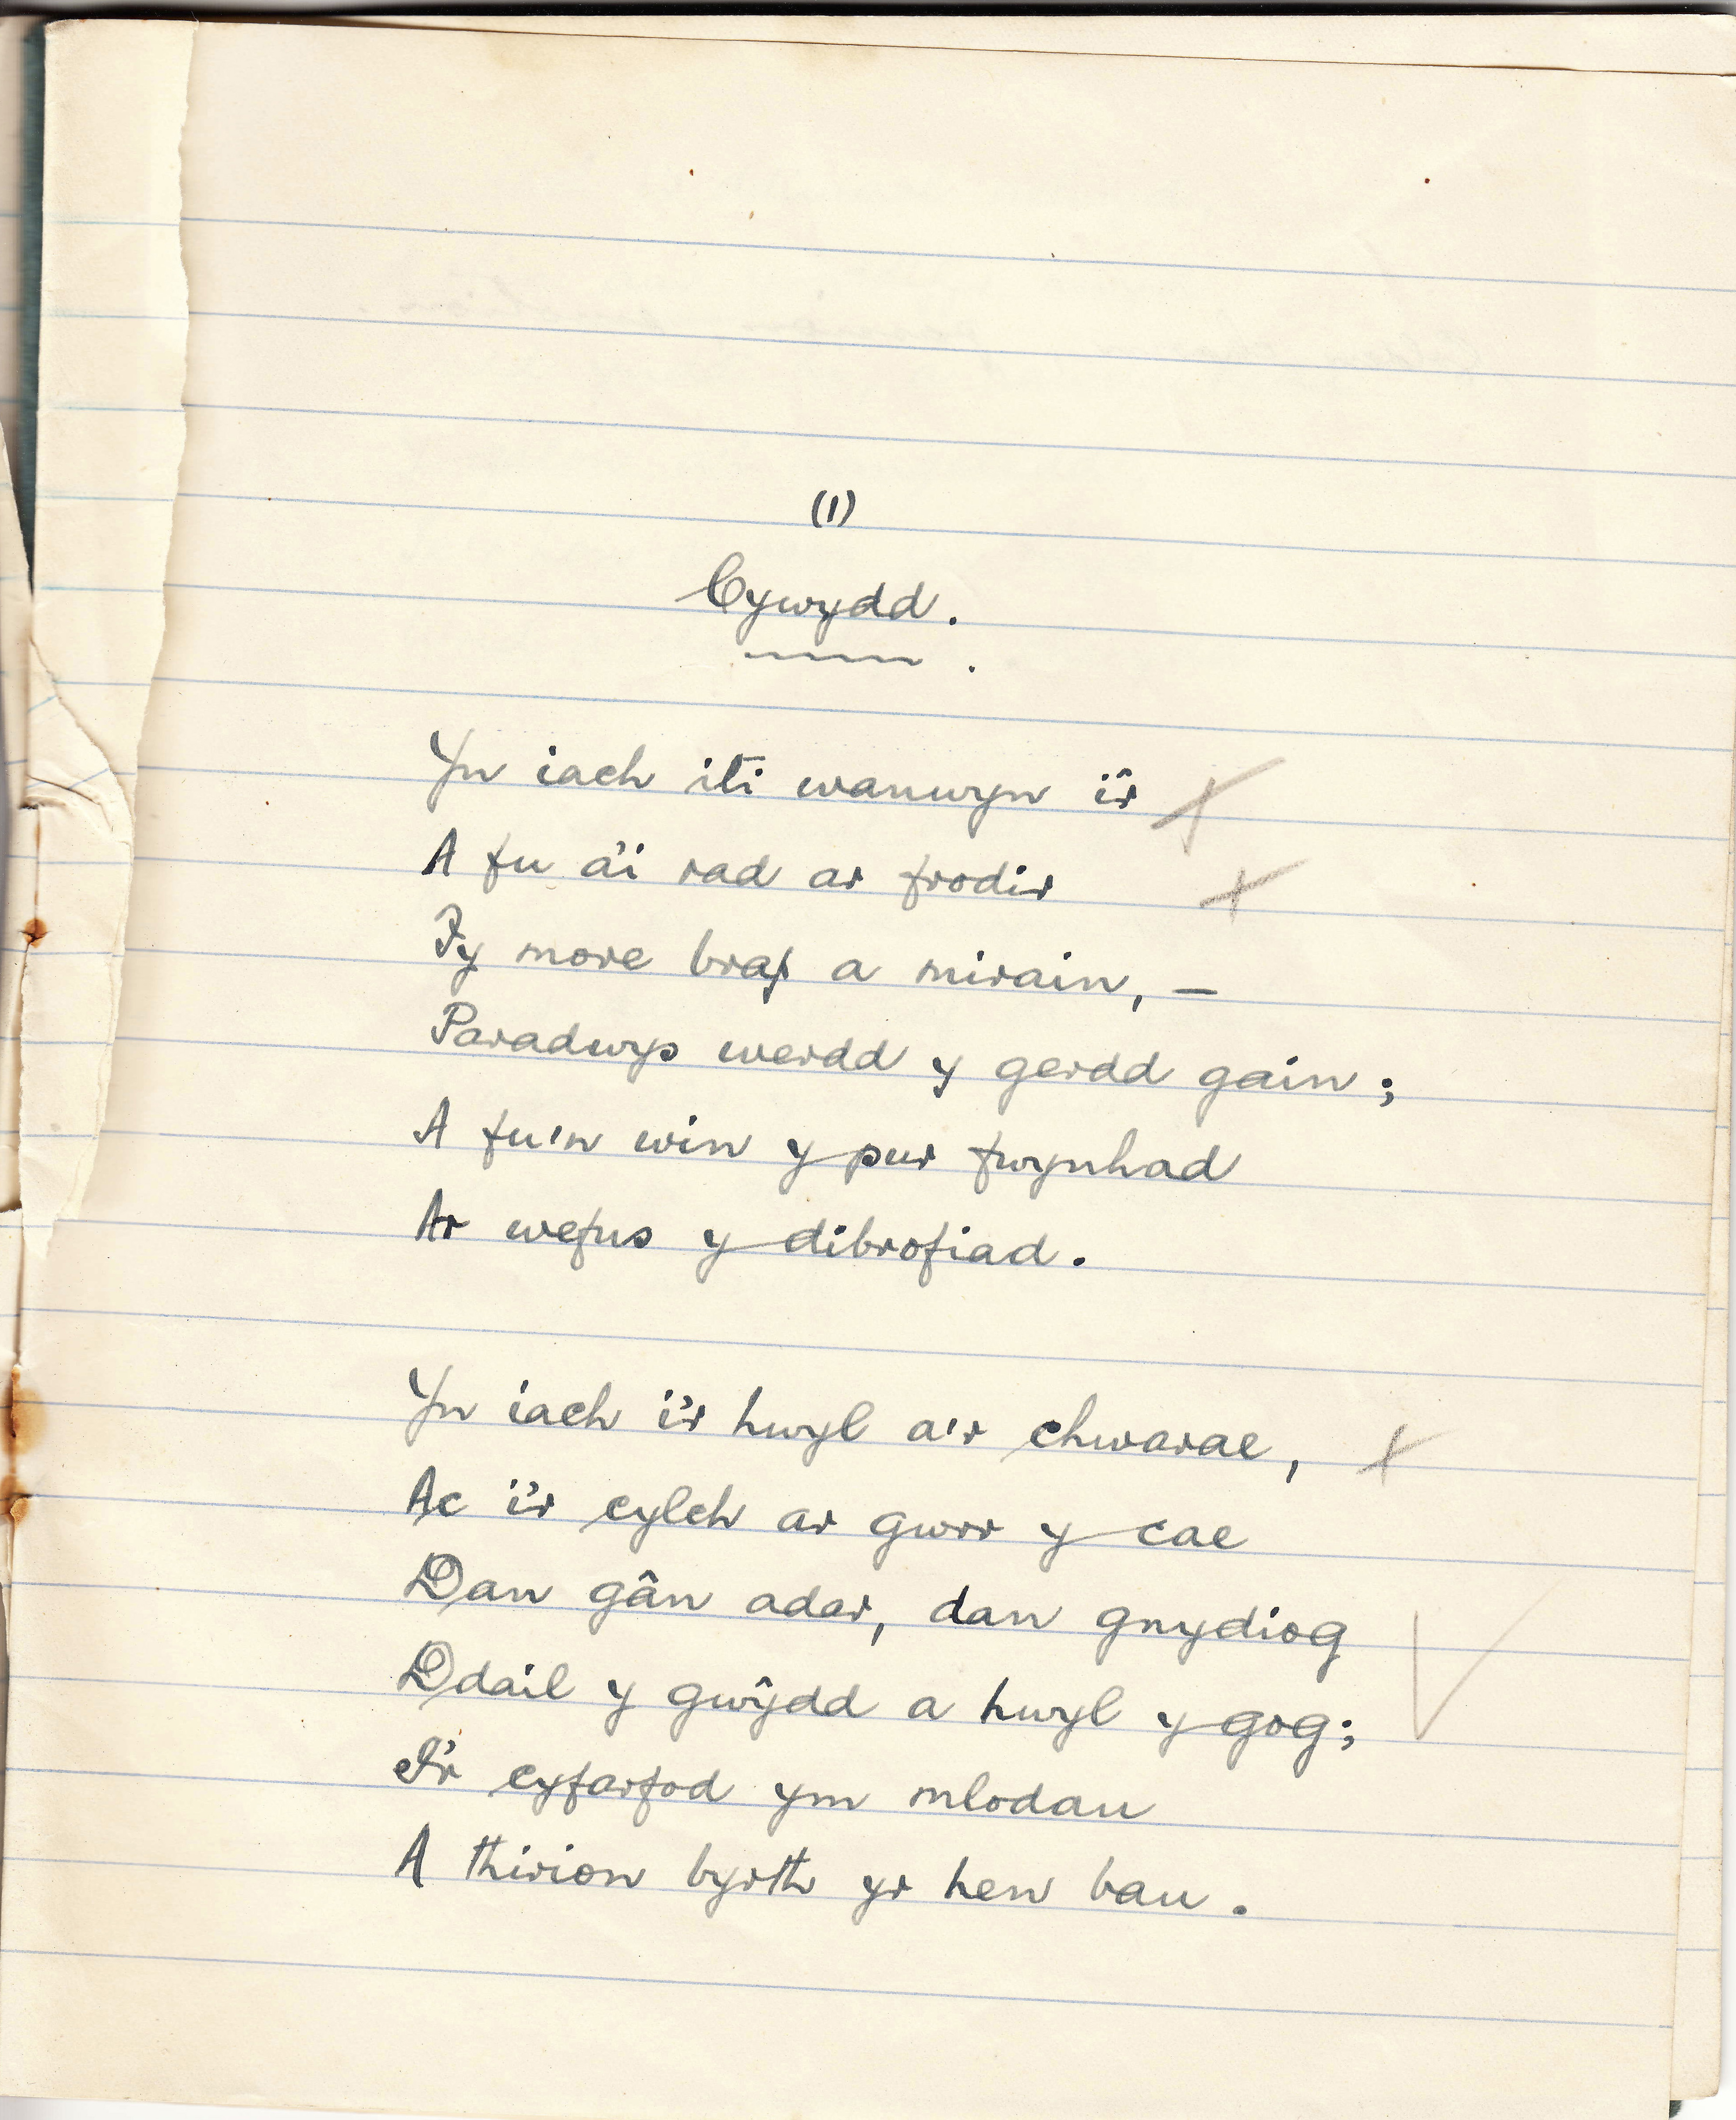 (1)
Cywydd.
Yn iach iti wanwyn îr
A fu a'i rad ar frodir
Fy more braf a mirain, —
Paradwys werdd y gerdd gain;
A fu'n win y pur fwynhad
Ar wefus y dibrofiad.
Yn iach i'r hwyl a'r chwarae,
Ac i'r cylch ar gwrr y cae
Dan gân adar, dan gnydiog
Ddail y gwŷdd a hwyl y gog;
I'r cyfarfod ym mlodau
A thirion byrth yr hen bau.